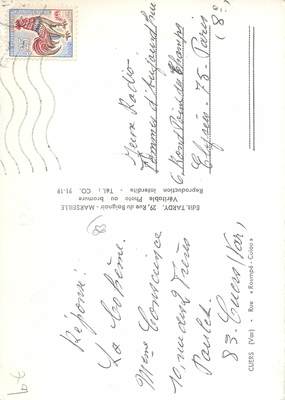 Réponse:
La Bohème.
Mme Conscience
10, rue des 2 Frères
Paulet
83. Cuers (Var)
Jeux Radio
Femmes d'Aujourd'hui
6 Rond Point des Champs
Elysées - 75 - Paris
(8e)
Edit. TARDY, 29, Rue du Baignoir - MARSEILLE
Véritable Photo au bromure
Reproduction interdite - Tél.: CO. 91-19
CUERS (Var) - Rue « Roumpé-Cuieou »
83